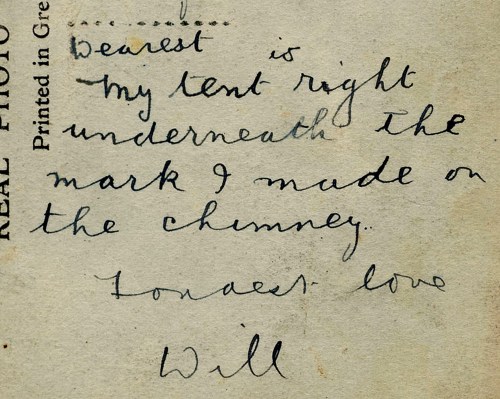 REAL PHOTO
Printed in Gre
Dearest
is
My tent right
underneath the
mark I made on
the chimney.
Fondest love
Will